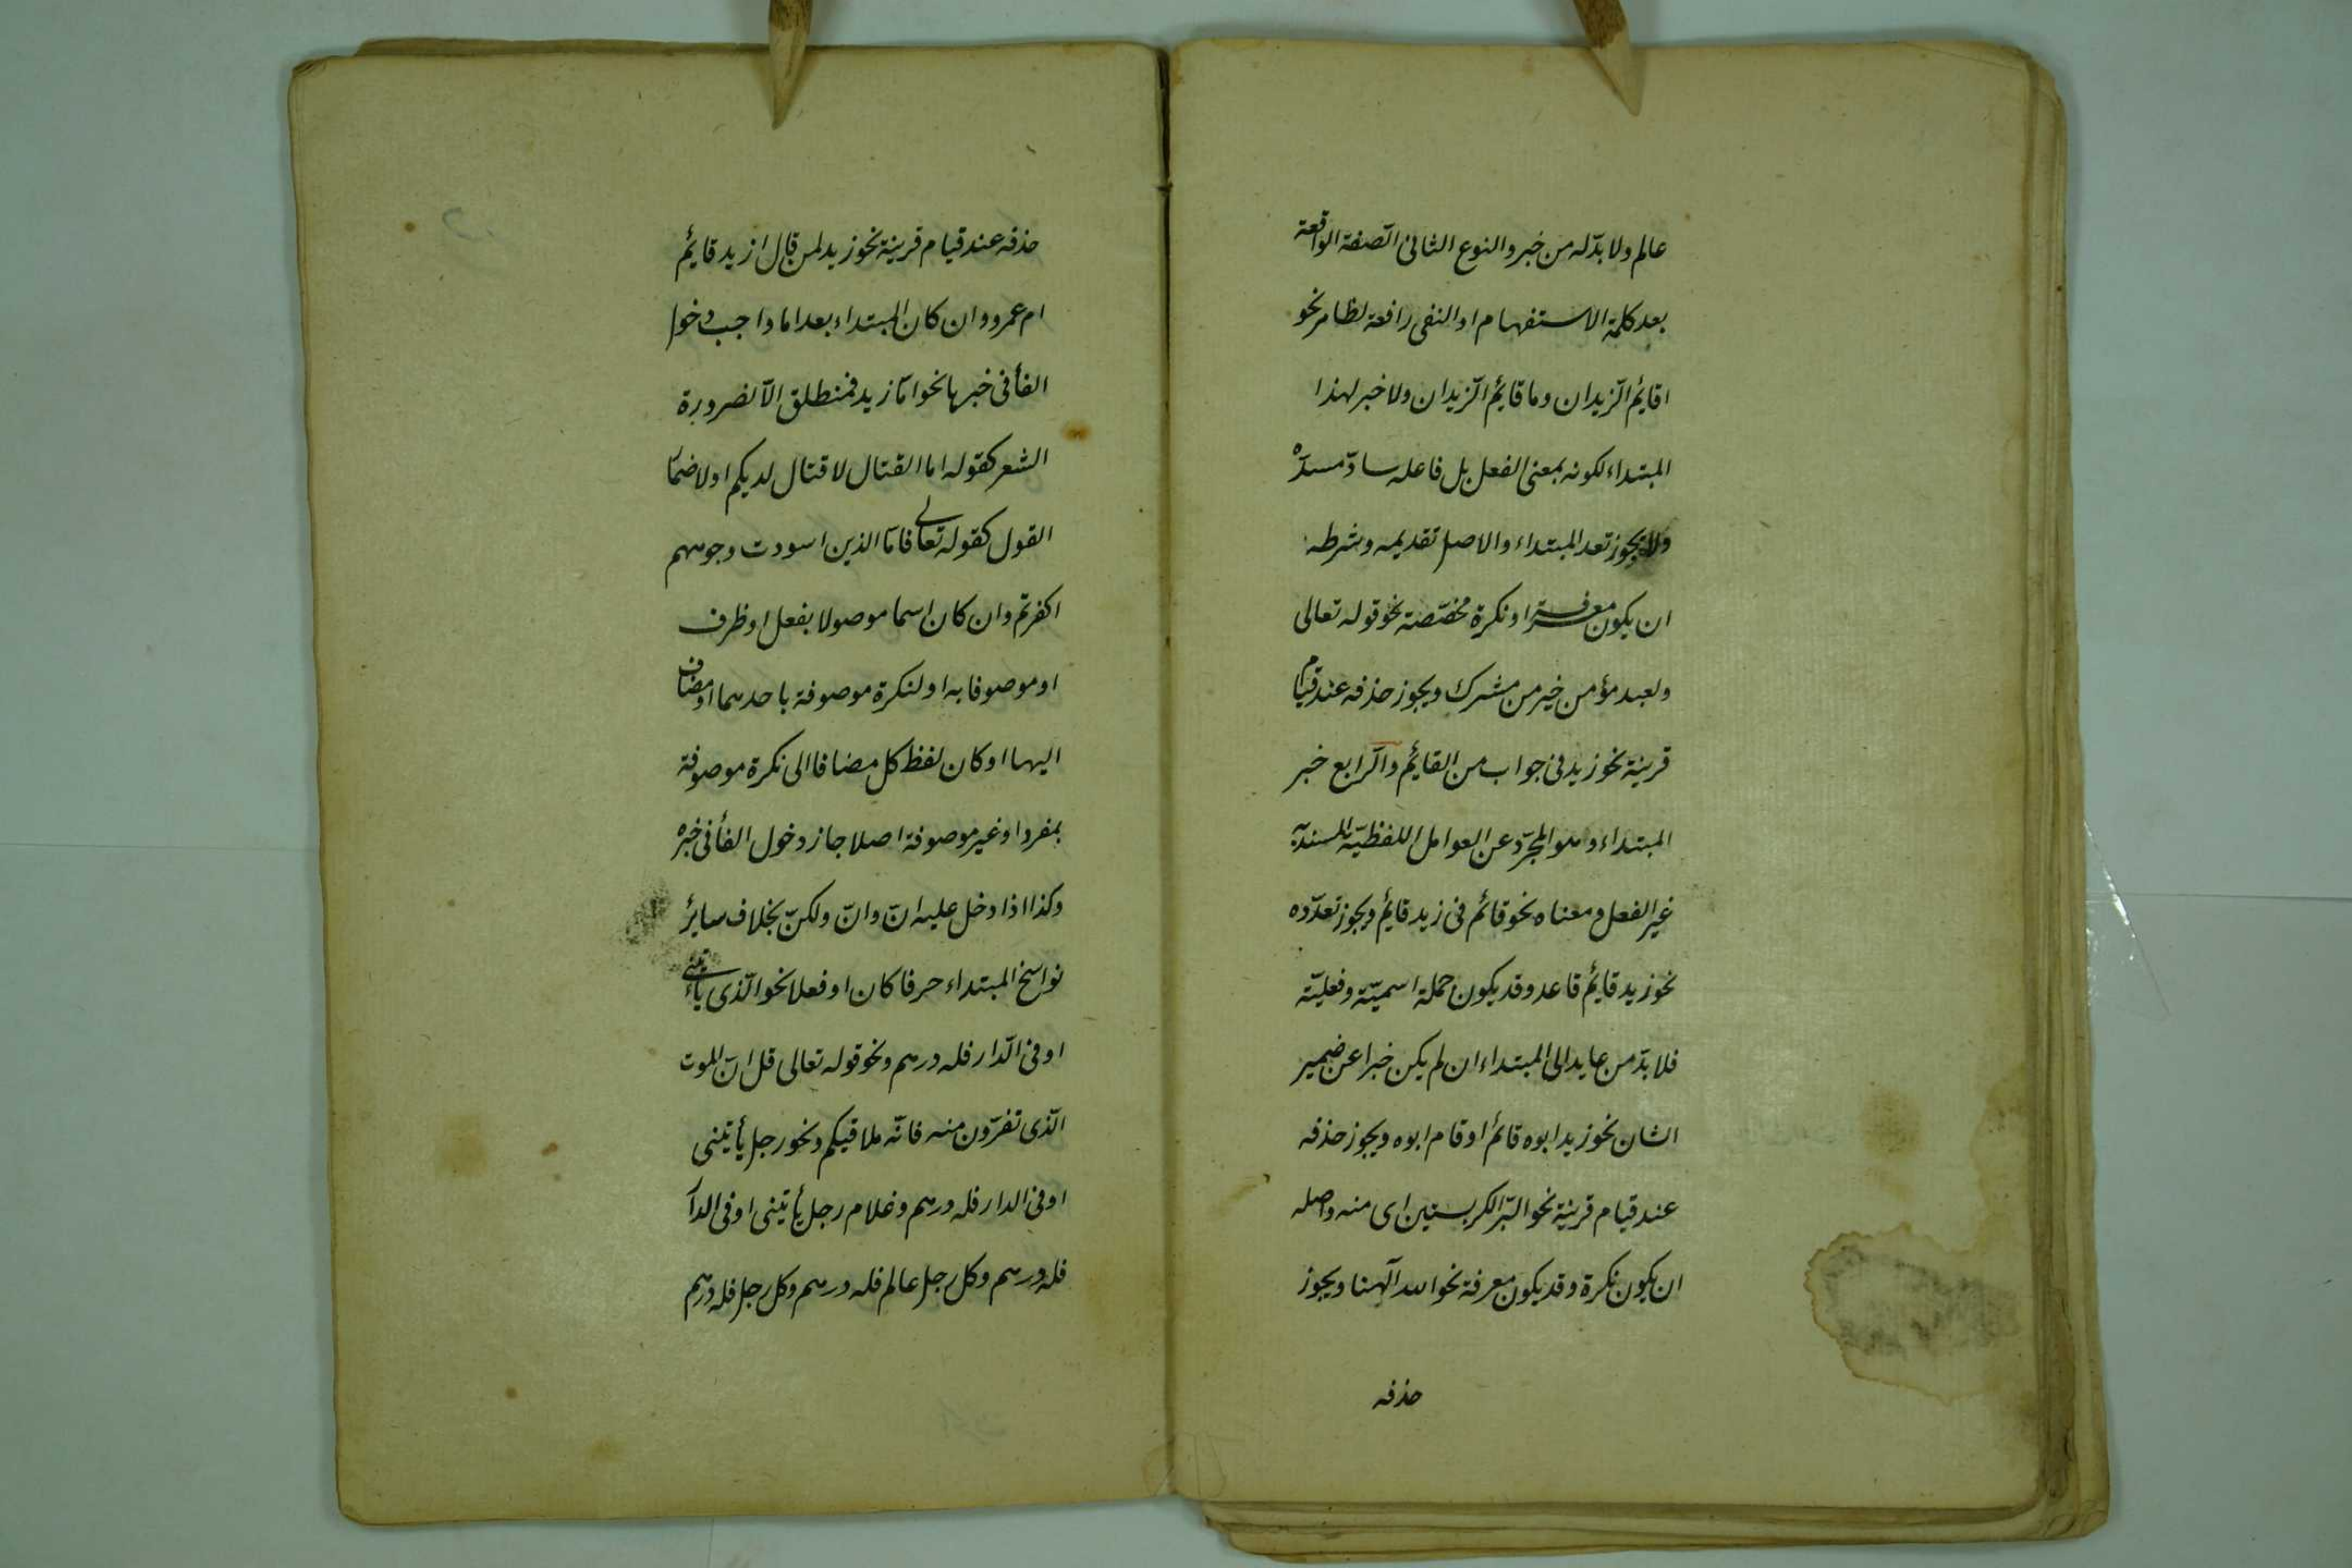 عالم ولا بدّ له من خبر والنوع الثانى الصّفة الواقعة
بعد كلمة الاستفهام او النفى رافعة لظاهر نحو
اقائم الزّيدان وما قائم الزّيدان ولا خبر لهذا
المبتداء لكونه بمعنى الفعل بل فاعله سادّ مسدّه
ولا يجوز تعد المبتداء والاصل تقديمه وشرطه
ان يكون معرفة او نكرة مخصّصة نحو قوله تعالى
ولعبد مؤمن خير من مشرك ويجوز حذفه عند قيام
قرينة نحو زيد فى جواب من القائم والرّابع خبر
المبتداء وهو المجرّد عن العوامل اللفظيّة المسند به
غير الفعل ومعناه نحو قائم فى زيد قائم ويجوز تعدّده
نحو زيد قائم قاعد وقد يكون جملة اسميّة وفعليّة
فلا بدّ من عايد الى المبتداء ان لم يكن خبرا عن ضمير
الشان نحو زيد ابوه قائم او قام ابوه ويجوز حذفه
عند قيام قرينة نحو البرّ الكر بستين اى منه واصله
ان يكون نكرة وقد يكون معرفة نحو الله آلهنا ويجوز
حذفه
حذفه عند قيام قرينة نحو زيد لمن قال ازيد قائم
ام عمرو وان كان المبتداء بعد اما واجب دخول
الفأ فى خبرها نحو امّا زيد فمنطلق الّا لضرورة
الشعر كقوله اما القتال لا قتال لديكم او لاضمار
القول كقوله تعالى فامّا الذين اسودت وجوههم
اكفرتم وان كان اسما موصولا بفعل او ظرف
او موصوفا به او لنكرة موصوفة باحدهما او مضاف
اليهما او كان لفظ كل مضافا الى نكرة موصوفة
بمفرد او غير موصوفة اصلا جاز دخول الفأ فى خبره
وكذا اذا دخل عليه انّ وانّ ولكنّ بخلاف سائر
نواسخ المبتداء حرفا كان او فعلا نحو الّذى يأتينى
او فى الدّار فله درهم ونحو قوله تعالى قل انّ الموت
الّذى تفرّون منه فانّه ملاقيكم ونحو رجل يأتينى
او فى الدار فله درهم وغلام رجل يأتينى او فى الدار
فله درهم وكل رجل عالم فله درهم وكل رجل فله درهم